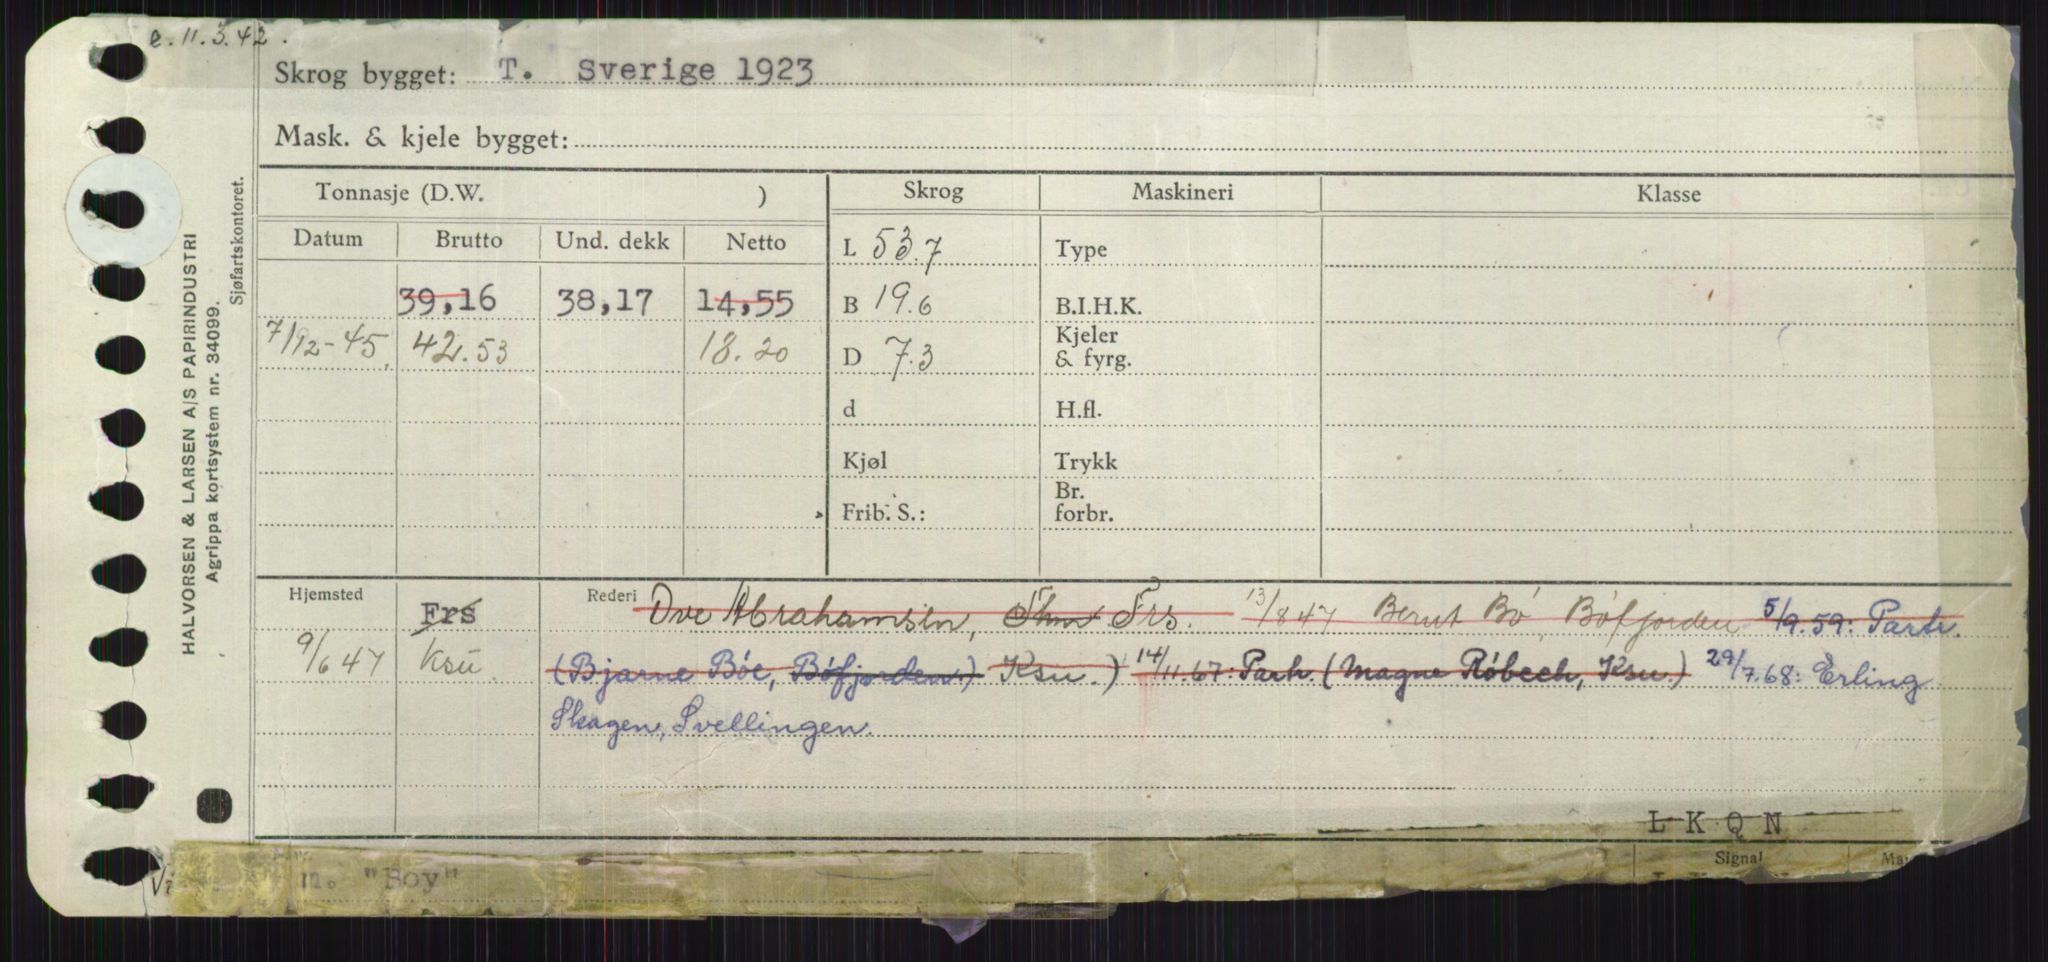 e. 11.3.42.
Skrog bygget: T. Sverige 1923
Mask. & kjele bygget:
Tonnasje (D.W. ) Skrog Maskineri Klasse
Datum Brutto Und. dekk Netto L 53.7 Type
39,16 38,17 14,55 B 19.6 B.I.H.K.
7/12-45. 42.53 18.20 D 7.3 Kjeler & fyrg.
d H.fl.
Kjøl Trykk
Frib. S.: Br. forbr.
Hjemsted Frs Rederi Ove Abrahamsen, Frs. 13/8 47 Bernt Bø, Bøfjorden 5/9.59: Partr.
9/6 47 Ksu. (Bjarne Bøe, Bøfjorden.) Ksu.) 14/11.67: Partr. (Magne Røbech, Ksu.) 29/7.68: Erling
Skagen, Svellingen.
L K Q N
Signal
"Boy"
HALVORSEN & LARSEN A/S PAPIRINDUSTRI
Agrippa kortsystem nr. 34099.
Sjøfartskontoret.